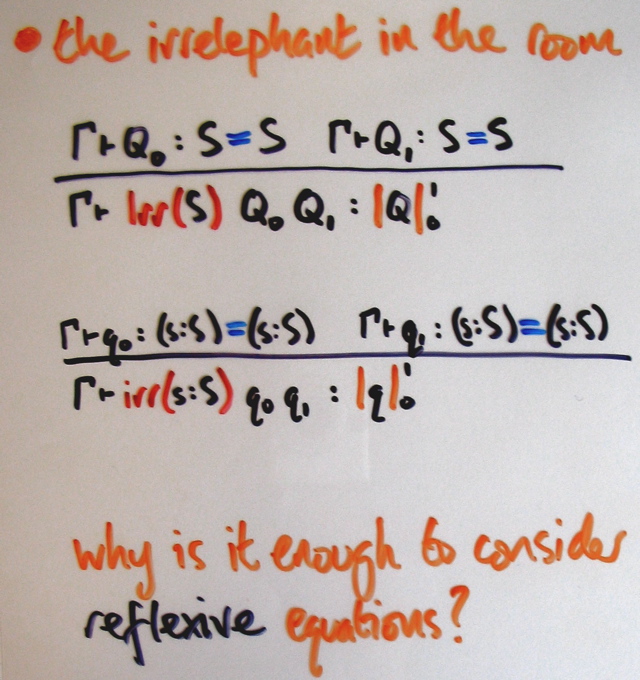 • the irrelephant in the room
Γ⊢Q₀ : S=S Γ⊢Q₁ : S=S
Γ⊢ Irr(S) Q₀ Q₁ : |Q|₀¹
Γ⊢q₀ : (s:S)=(s:S) Γ⊢q₁ : (s:S)=(s:S)
Γ⊢ irr(s:S) q₀ q₁ : |q|₀¹
why is it enough to consider
reflexive equations?